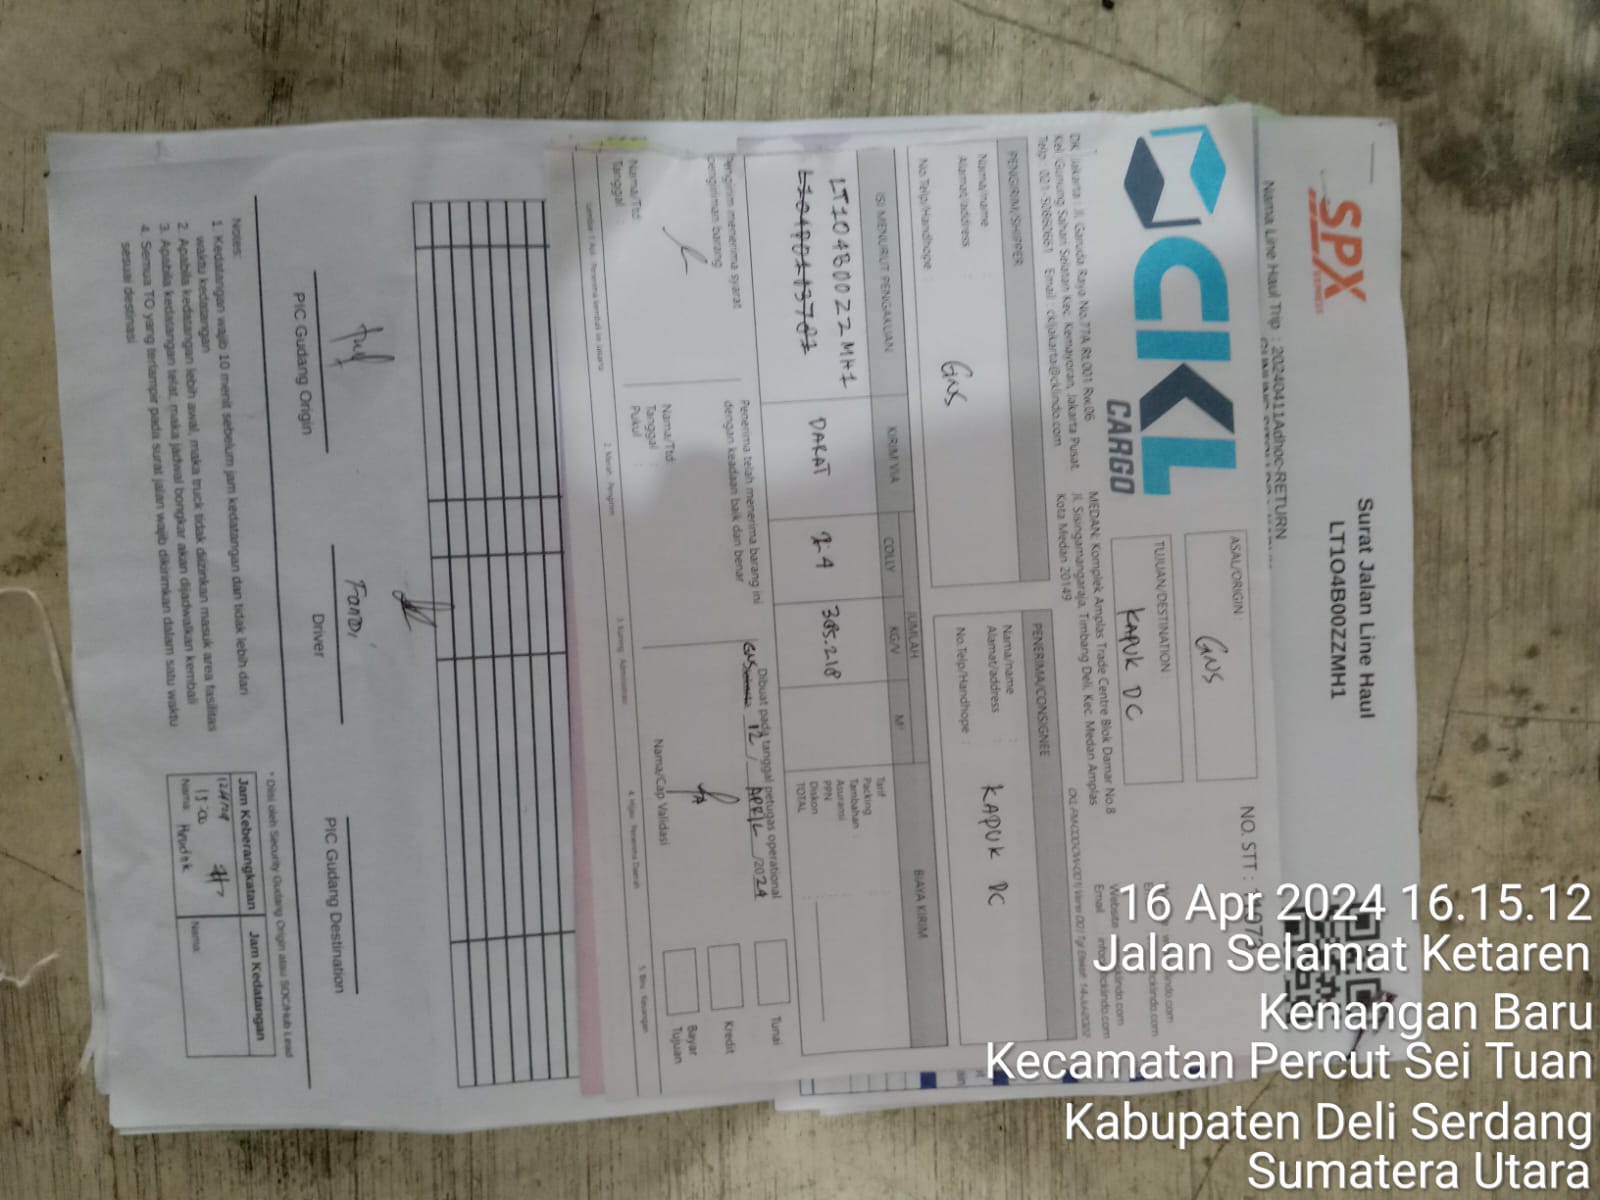 SPX
EXPRESS
Surat Jalan Line Haul
LT1O4B00ZZMH1
Nama Line Haul Trip : 20240411Adhoc-RETURN
CKL
CARGO
ASAL/ORIGIN :
GNS
TUJUAN/DESTINATION :
KAPUK DC
NO. STT :
DK. Jakarta : Jl. Garuda Raya No.77A Rt.001 Rw.06
Kel. Gunung Sahari Selatan Kec. Kemayoran, Jakarta Pusat.
Telp. 021-50860661 Email : ckljakarta@cklindo.com
MEDAN: Komplek Amplas Trade Centre Blok Damar No.8
Jl. Sisingamangaraja, Timbang Deli, Kec. Medan Amplas
Kota Medan 20149
Website
Email
PENGIRIM/SHIPPER
Nama/name :
Alamat/address :
GNS
No.Telp/Handhope :
PENERIMA/CONSIGNEE
Nama/name :
Alamat/address :
KAPUK DC
No.Telp/Handhope :
ISI MENURUT PENGAKUAN
KIRIM VIA
JUMLAH
COLLY
KG/V
M³
BIAYA KIRIM
LT1O4B00ZZMH1
DARAT
24
305.218
Tarif
Packing
Tambahan :
Asuransi
PPN
Diskon
TOTAL
Pengirim menerima syarat
pengiriman barang
Penerima telah menerima barang ini
dengan keadaan baik dan benar
Dibuat pada tanggal petugas operational
GNS 12 / APRIL /2024
Nama/Ttd:
Tanggal :
Nama/Ttd:
Tanggal :
Pukul :
Nama/Cap Validasi
Tunai
Kredit
Bayar
Tujuan
PIC Gudang Origin
Fandi
Driver
PIC Gudang Destination
Notes:
1. Kedatangan wajib 10 menit sebelum jam kedatangan dan tidak lebih dari
waktu kedatangan
2. Apabila kedatangan lebih awal, maka truck tidak diizinkan masuk area fasilitas
3. Apabila kedatangan telat, maka jadwal bongkar akan dijadwalkan kembali
4. Semua TO yang terlampir pada surat jalan wajib dikirimkan dalam satu waktu
sesuai destinasi
* Diisi oleh Security Gudang Origin atau SOC/Hub Lead
Jam Keberangkatan
Jam Kedatangan
15:00
Nama
Nama:
16 Apr 2024 16.15.12
Jalan Selamat Ketaren
Kenangan Baru
Kecamatan Percut Sei Tuan
Kabupaten Deli Serdang
Sumatera Utara